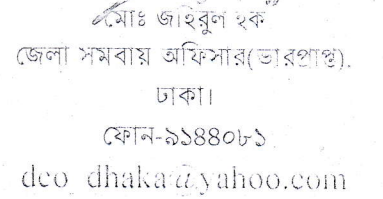 মোঃ জহিরুল হক
জেলা সমবায় অফিসার(ভারপ্রাপ্ত).
ঢাকা।
ফোন-৯১৪৪০৮১
dco_dhaka@yahoo.com